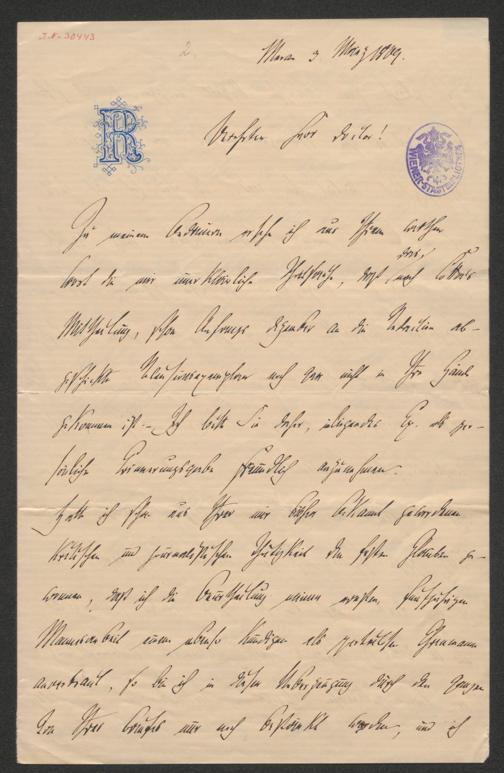 I.N. 30443
2
Meran 3 März 1889.
R
Verehrter Herr Doctor!
WIENER-STADTBIBLIOTHEK
Zu meinem Bedauern ersehe ich aus Ihrem werthen
das,
Wort die mir unerklärliche Thatsache, daß nach Cottas
Mittheilung, schon Anfangs Dezember an die Redaktion ab-
geschickte Recensionsexemplar noch gar nicht in Ihre Hände
gekommen ist. – Ich bitte Sie daher, inliegendes Ex. als per-
sönliche Erinnerungsgabe freundlich anzunehmen.
Hatte ich schon aus Ihrer mir bisher bekannt gewordenen
kritischen und journalistischen Thätigkeit den festen Glauben ge-
wonnen, daß ich die Beurtheilung meiner ernsten,
Mannesarbeit einem ebenso kundigen als Ehrenmann
anvertraut, so bin ich in dieser Ueberzeugung durch den ganzen
Ton Ihres Briefes nur noch bestärkt worden, und ich